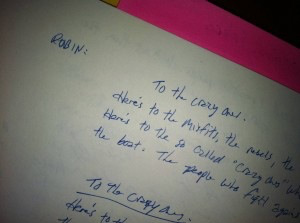 ROBIN:
To the crazy ones.
Here's to the misfits, the rebels, the
Here's to the so called "crazy ones" who
the best. The people who fight against
To the crazy ones.
Here's to the
the